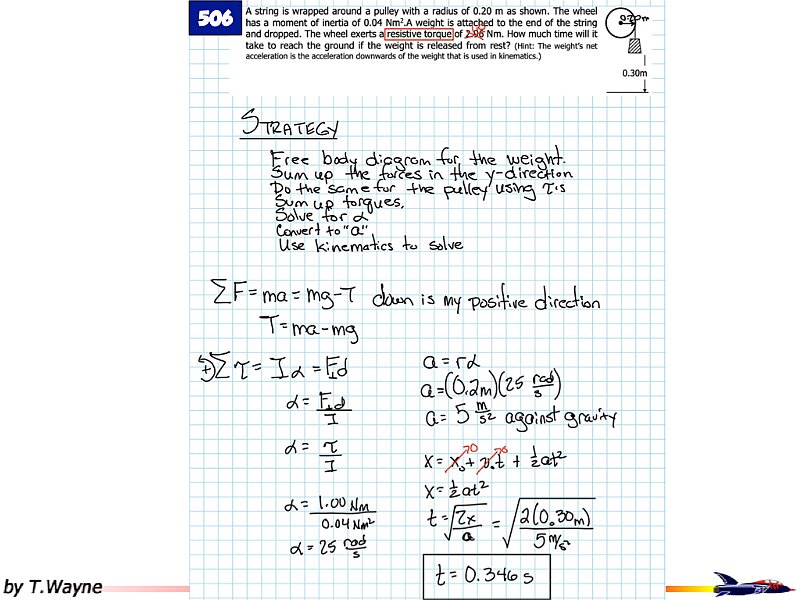 506
A string is wrapped around a pulley with a radius of 0.20 m as shown. The wheel
has a moment of inertia of 0.04 Nm².A weight is attached to the end of the string
and dropped. The wheel exerts a resistive torque of Nm. How much time will it
take to reach the ground if the weight is released from rest? (Hint: The weight's net
acceleration is the acceleration downwards of the weight that is used in kinematics.)
0.20m
0.30m
STRATEGY
Free body diagram for the weight.
Sum up the forces in the y-direction
Do the same for the pulley using τ's
Sum up torques.
Solve for α
Convert to "a"
Use kinematics to solve
ΣF = ma = mg-T down is my positive direction
T = ma-mg
+ Στ = Iα = F⊥d
α = F⊥d / I
α = τ / I
α = 1.00 Nm / 0.04 Nm²
α = 25 rad/s
a = rα
a = (0.2m)(25 rad/s)
a = 5 m/s² against gravity
x = x₀ + v₀t + ½at²
x = ½at²
t = √(2x/a) = √(2(0.30m) / 5 m/s²)
t = 0.346 s
by T.Wayne